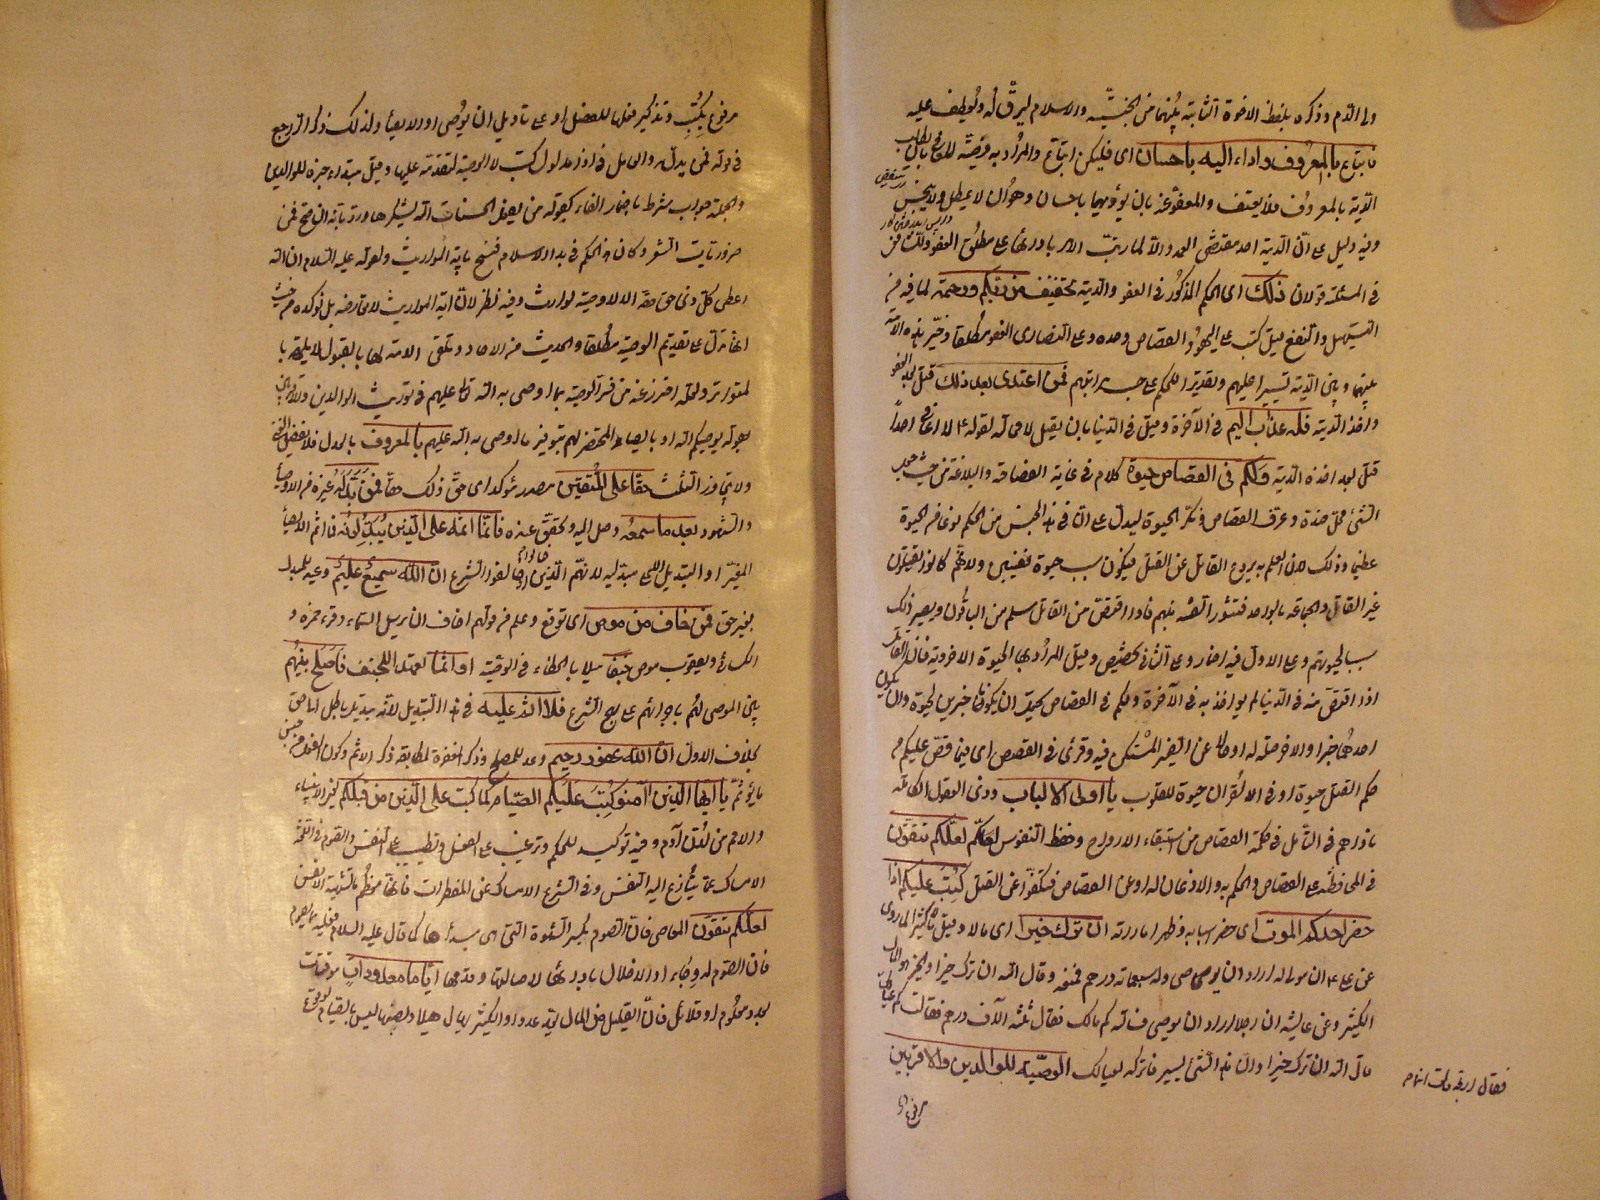 ولي الدم وذكره بلفظ الاخوة الثابتة بينهما من الجنسية والاسلام ليرق له ويعطف عليه
فاتباع بالمعروف واداء اليه باحسان اى فليكن اتباع والمراد به وصية للعافي بان يطلب
الدية بالمعروف فلا يعنف والمعفو عنه بان يؤديها باحسان وهو ان لا يمطل ولا يبخس
وفيه دليل على ان الدية احد مقتضى العمد والا لما رتب الامر بادائها على مطلق العفو وللشافعي
في المسئلة قولان ذلك اى الحكم المذكور في العفو والدية تخفيف من ربكم ورحمة لما فيه من
التسهيل والنفع قيل كتب على اليهود القصاص وحده وعلى النصارى العفو مطلقا وخير هذه الامة
بينهما وبين الدية تيسيرا عليهم وتقديرا للحكم على حسب مراتبهم فمن اعتدى بعد ذلك قتل بعد العفو
واخذ الدية فله عذاب اليم في الآخرة وقيل في الدنيا بان يقتل لا محالة لقوله ع م لا اعافي احدا
قتل بعد اخذه الدية ولكم في القصاص حيوة كلام في غاية الفصاحة والبلاغة من حيث جعل
الشئ محل ضده وعرف القصاص ونكر الحيوة ليدل على ان في هذا الجنس من الحكم نوعا من الحيوة
عظيما وذلك لان العلم به يردع القاتل عن القتل فيكون سبب حيوة نفسين ولانهم كانوا يقتلون
غير القاتل والجماعة بالواحد فتثور الفتنه بينهم فاذا اقتص من القاتل سلم من الباقون ويصير ذلك
سببا لحيوتهم وعلى الاول فيه اضمار وعلى الثاني تخصيص وقيل المراد بها الحيوة الاخروية فان القاتل
اذا اقتص منه في الدنيا لم يواخذ به في الآخرة ولكم في القصاص يحتمل ان يكونا خبرين لحيوة وان يكون
احدهما خبرا والاخر صلة له او حالا عن الضمير المستكن فيه وقرئ في القصص اى فيما قص عليكم من
حكم القتل حيوة او في القران حيوة للقلوب يا اولى الالباب ذوى العقول الكاملة
ناداهم في التأمل في حكمة القصاص من استبقاء الارواح وحفظ النفوس لعلكم تتقون
في المحافظة على القصاص والحكم به والاذعان له او عن القصاص فتكفوا عن القتل كتب عليكم اذا
حضر احدكم الموت اى حضر اسبابه وظهر اماراته ان ترك خيرا اى مالا وقيل مالا كثيرا لما روى
عن على ان مولى له اراد ان يوصى وله سبعمائه درهم فمنعه وقال قال الله ان ترك خيرا والخير هو المال
الكثير وعن عايشه ان رجلا اراد ان يوصى فسالته كم مالك فقال ثلثه الآف درهم فقالت كم عيالك
فقال اربعة قالت انما
قال الله ان ترك خيرا وان هذا الشئ يسير فاتركه لعيالك الوصية للوالدين والاقربين
مرفوع
مرفوع بكتب وتذكير فعلها للفصل او على تاويل ان يوصى او الايصاء ولذلك ذكر الراجع
في قوله فمن بدله والعامل في اذا مدلول كتب لا الوصية لتقدمه عليها وقيل مبتداء خبره للوالدين
والجملة جواب الشرط باضمار الفاء كقوله من يفعل الحسنات الله يشكرها ورد بانه ان صح فمن
ضرورات الشعر وكان هذا الحكم في بدا الاسلام فنسخ باية المواريث ولقوله عليه السلام ان الله
اعطى كل ذى حق حقه الا لا وصية لوارث وفيه نظر لان اية المواريث لا تعارضه بل توكده من حيث
انها تدل على تقديم الوصية مطلقا والحديث من الاحاد وتلقى الامة لها بالقبول لا يلحقه با
لمتواتر ولعله احترز عنه من فسر الوصية بما اوصى به الله تعالى عليهم في توريث الوالدين والاقربين
بقوله يوصيكم الله او بايصاء المحتضر لهم بتوفير ما اوصى به الله عليهم بالمعروف بالعدل فلا يفضل الغنى
ولا يتجاوز الثلث حقا على المتقين مصدر مؤكد اى حق ذلك حقا فمن بدله غيره من الاوصياء
والشهود بعد ما سمعه وصل اليه وتحقق عنده فانما اثمه على الذين يبدلونه فما اثم الايصاء
المغير او التبديل الا على مبدليه لانهم الذين خانوا وخالفوا الشرع ان الله سميع عليم وعيد للمبدل
بغير حق فمن خاف من موص اى توقع وعلم من قولهم اخاف ان ترسل السماء وقرء حمزه و
الكسائى ويعقوب موص جنفا ميلا بالخطاء في الوصية او اثما تعمدا للجنف فاصلح بينهم
بين الموصى لهم باجرائهم على نهج الشرع فلا اثم عليه في هذا التبديل لانه تبديل باطل الى حق
بخلاف الاول ان الله غفور رحيم وعد للمصلح وذكر المغفرة لمطابقة ذكر الاثم وكون الفعل من جنس
ما يؤثم يا ايها الذين آمنوا كتب عليكم الصيام كما كتب على الذين من قبلكم يعنى الانبياء
والامم من لدن آدم وفيه توكيد للحكم وترغيب على الفعل وتطييب على النفس والصوم في اللغة
الامساك عما ينازع اليه النفس وفي الشرع الامساك عن المفطرات فانها معظم ما تشتهيه الانفس
لعلكم تتقون المعاصى فان الصوم يكسر الشهوة التى هى مبدأها كما قال عليه السلام فعليه بالصوم
فان الصوم له وجاء او الاخلال بادائه لاصالته وقدمه اياما معدودات موقتات
بعدد معلوم او قلائل فان القليل من المال يعد عدا والكثير يهال هيلا ونصبها ليس بالصيام لوقوع